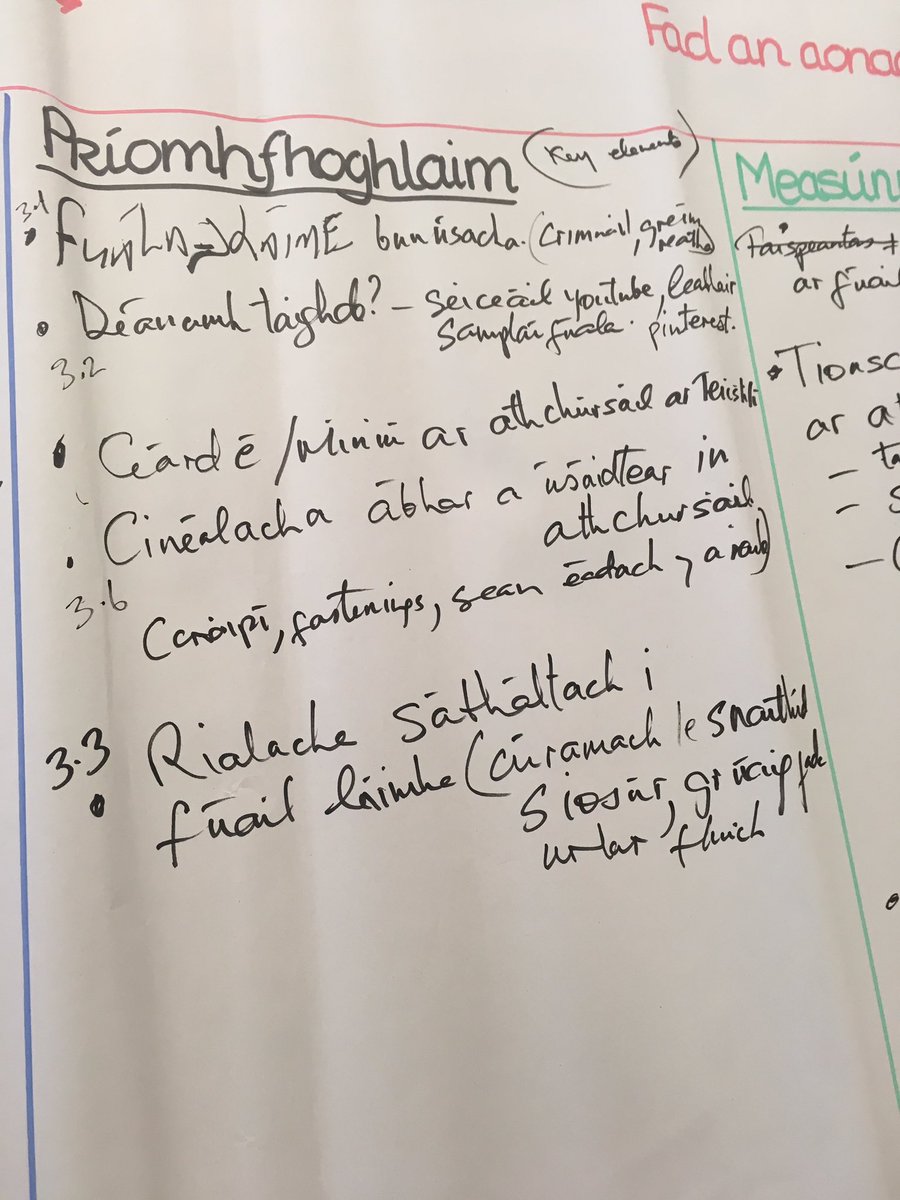 Fad an aona
Príomhfhoghlaim (Key elements)
3.1
• bunúsacha. (Criminail, greim
• Déanamh taighde? - Seiceáil youtube, leabhair
Samplaí fuála. pinterest.
3.2
• Céard é / Míniú ar athchúrsáil ar
• Cinéalacha ábhar a úsáidtear in
athchursáil
3.6
(cnaipí, fastenings, sean éadach 7
3.3 Rialacha sátháltach i
• fúáil láimhe (cúramach le snáthaid
siosúr, gruaig fada
urlar fluich
Measún
Taispeantas
ar fúáil
• Tionsc
ar a
- ta
- s